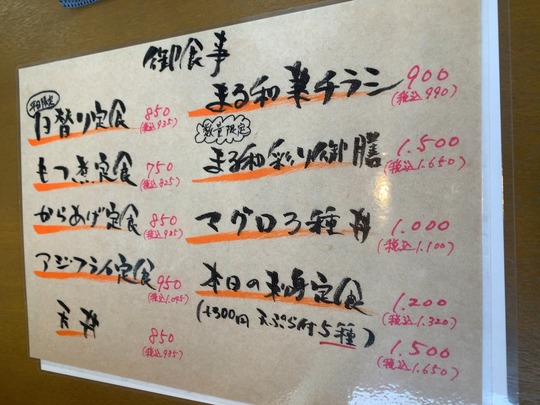 御食事
平日限定
日替り定食 850
(税込935)
もつ煮定食 750
(税込825)
からあげ定食 850
(税込935)
アジフライ定食 950
(税込1.045)
天丼 850
(税込935)
まる和華チラシ 900
(税込990)
数量限定
まる和彩り御膳 1.500
(税込1.650)
マグロ3種丼 1.000
(税込1.100)
本日の刺身定食 1.200
(税込1.320)
(+300円 天ぷら付5種) 1.500
(税込1.650)